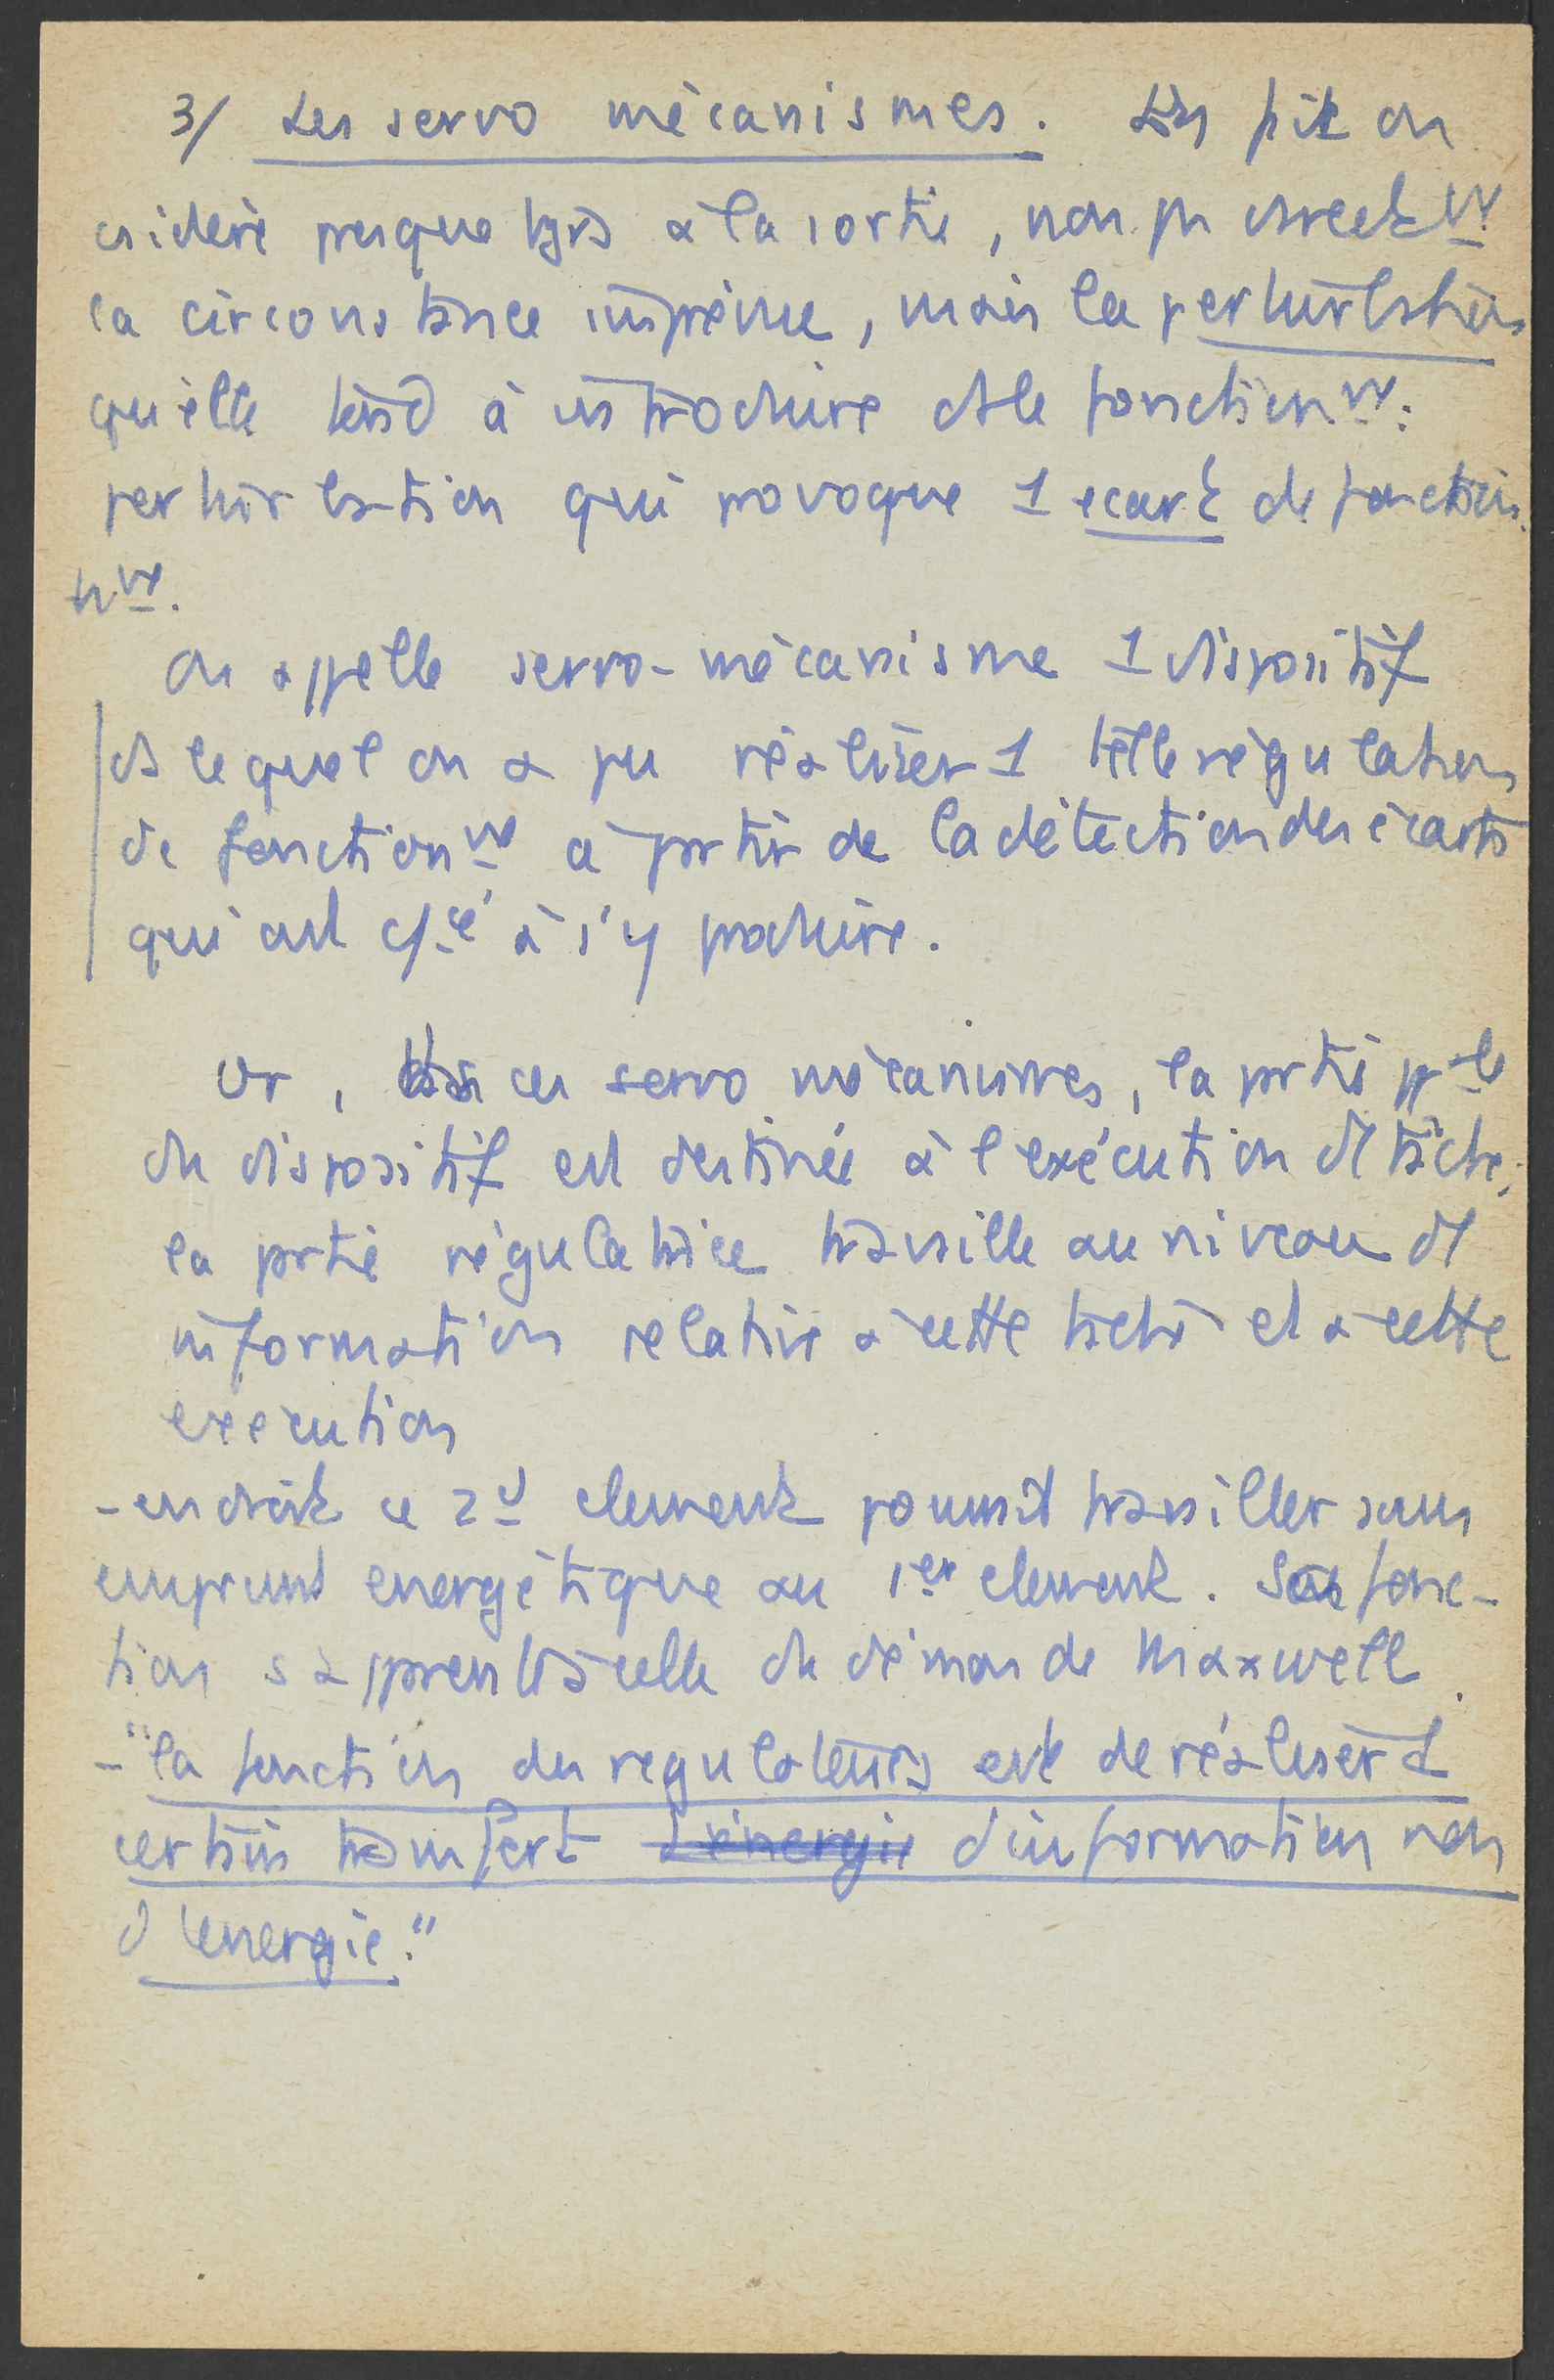 3/ Les servo mécanismes. En fait on
csidère presque tjrs à la sortie, non ps directt
la circonstance imprévue, mais la perturbation
qu'elle tend à introduire ds le fonctionnt :
perturbation qui provoque 1 ecart de fonction
nt.
On appelle servo-mécanisme 1 dispositif
ds lequel on a pu réaliser 1 telle régulation
de fonctionnt à partir de la détection des écarts
qui ont cé à s'y produire.
Or, ds ces servo mécanismes, la partie ple
du dispositif est destinée à l'exécution d'1 tâche,
la partie régulatrice travaille au niveau d'1
information relative à cette tâche et à cette
exécution
- en droit ce 2d element pourrait travailler sans
emprunt energétique au 1er element. Sa fonc-
tion s'apparente à celle du démon de Maxwell.
- "la fonction des regulateurs est de réaliser 1
certain transfert d'énergie d'information non
d'energie."